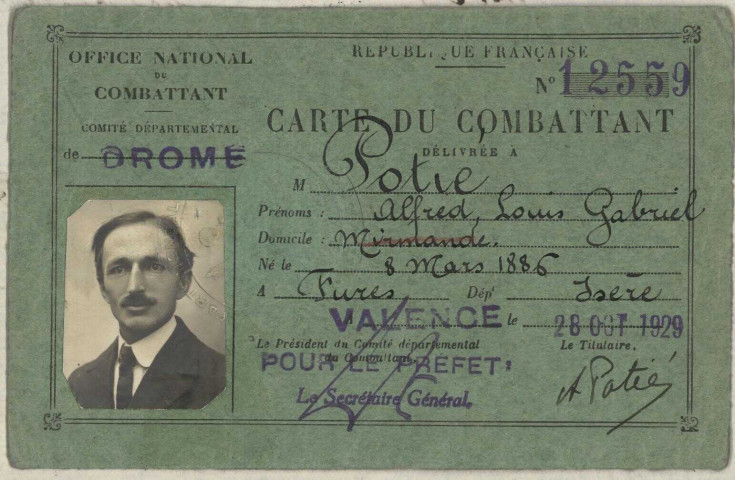 OFFICE NATIONAL
DU
COMBATTANT
COMITÉ DÉPARTEMENTAL
de DROME
RÉPUBLIQUE FRANÇAISE
N° 12559
CARTE DU COMBATTANT
DÉLIVRÉE À
M Potié
Prénoms : Alfred, Louis Gabriel
Domicile : Mirmande.
Né le 8 Mars 1886
A Fures Dépt Isère
A VALENCE le 28 OCT 1929
Le Président du Comité départemental
du Combattant,
Le Titulaire,
POUR LE PRÉFET:
Le Secrétaire Général,
A Potié